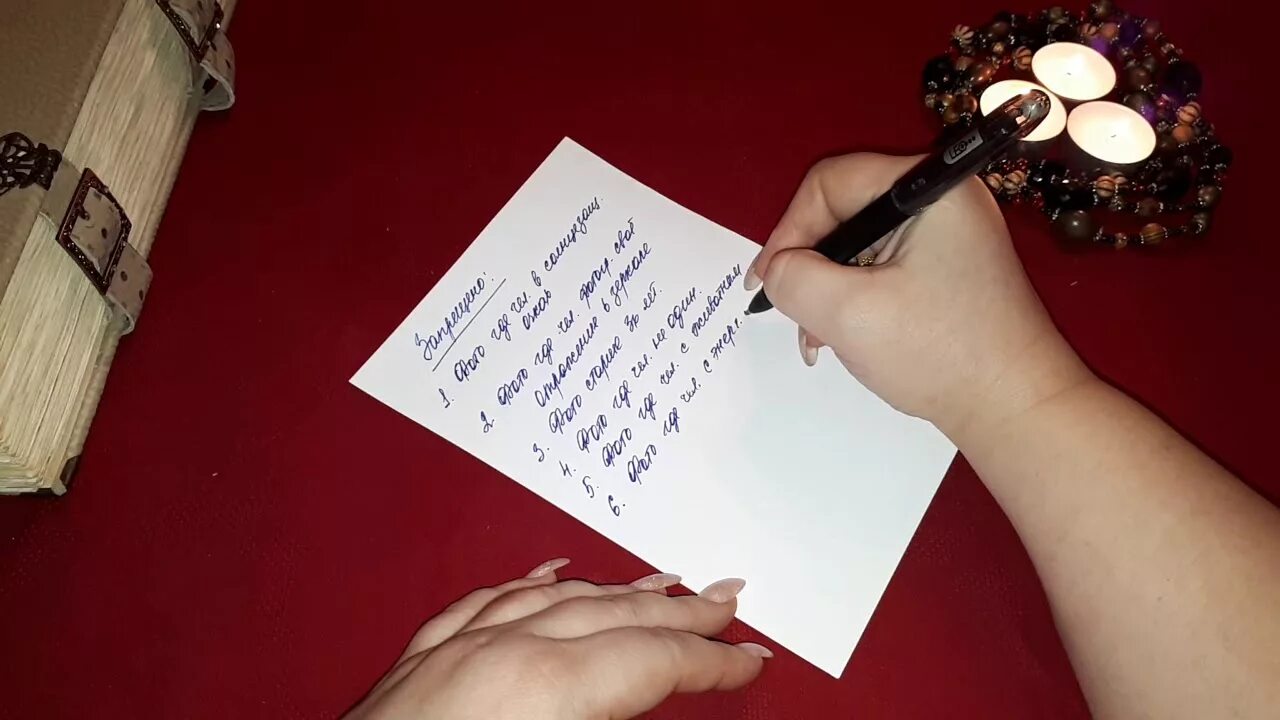 Запрещено:
1. Фото где чел. в солнцезащ.
очках
2. Фото где чел. фотогр. своё
отражение в зеркале
3. Фото старше 3х лет.
4. Фото где чел. не один.
5. Фото где чел. с животным
6. Фото где чел. с энерг.
LEO